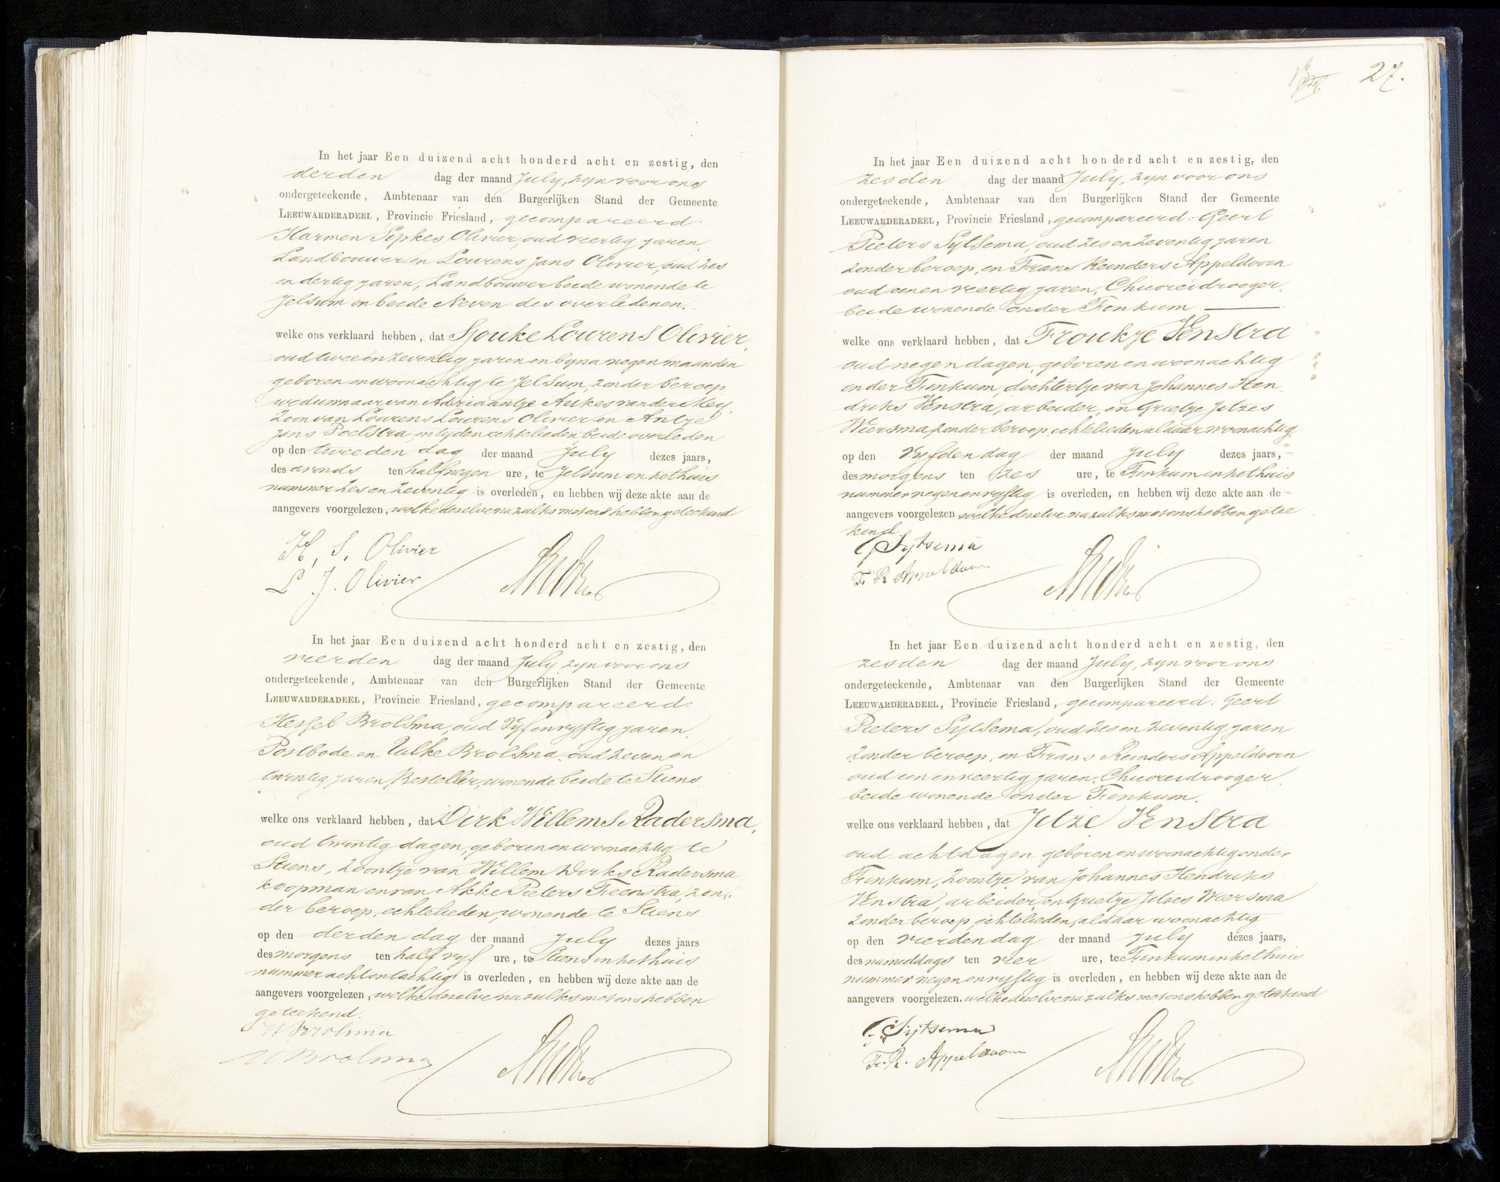 In het jaar Een duizend acht honderd acht en zestig, den
derden dag der maand July, zijn voor ons
ondergeteekende, Ambtenaar van den Burgerlijken Stand der Gemeente
LEEUWARDERADEEL, Provincie Friesland, gecompareerd
Harmen Sipkes Olivier, oud veertig jaren,
Landbouwer en Lourens Jans Olivier, oud zes
en dertig jaren, Landbouwer beide wonende te
Jelsum en beide Neven des overledenen.
welke ons verklaard hebben, dat Sjouke Lourens Olivier,
oud twee en zeventig jaren en bijna negen maanden
geboren en woonachtig te Jelsum, zonder beroep
weduwnaar van Adriaantje Aukes van der Meij,
Zoon van Lourens Lourens Olivier en Antje
Jans Poelstra, in tijden echtelieden beide overleden
op den tweeden dag der maand July dezes jaars,
des avonds ten half negen ure, te Jelsum in het huis
nummer zes en zeventig is overleden, en hebben wij deze akte aan de
aangevers voorgelezen, welke dezelve nazulks met ons hebben geteekend
H. S. Olivier
L. J. Olivier
In het jaar Een duizend acht honderd acht en zestig, den
vierden dag der maand July, zijn voor ons
ondergeteekende, Ambtenaar van den Burgerlijken Stand der Gemeente
LEEUWARDERADEEL, Provincie Friesland, gecompareerd
Hessel Brolsma, oud vijf en vijftig jaren,
Postbode en Uilke Brolsma, oud zeven en
twintig jaren, Besteller, wonende beide te Stiens
welke ons verklaard hebben, dat Dirk Willems Radersma,
oud twintig dagen, geboren en woonachtig te
Stiens, Zoontje van Willem Dirks Radersma
koopman en van Akke Pieters zon-
der beroep, echtelieden wonende te Stiens
op den derden dag der maand July dezes jaars
des morgens ten half vijf ure, te Stiens in het huis
nummer acht en tachtig is overleden, en hebben wij deze akte aan de
aangevers voorgelezen, welke dezelve nazulks met ons hebben
geteekend.
H Brolsma
U Brolsma
27.
In het jaar Een duizend acht honderd acht en zestig, den
zesden dag der maand July, zijn voor ons
ondergeteekende, Ambtenaar van den Burgerlijken Stand der Gemeente
LEEUWARDERADEEL, Provincie Friesland, gecompareerd Geert
Pieters Sytsema, oud zes en zeventig jaren
zonder beroep, en Frans Reinders Appeldoorn
oud een en veertig jaren, Chicoreidrooger,
beide wonende onder Finkum
welke ons verklaard hebben, dat Froukje Venstra
oud negen dagen, geboren en woonachtig
onder Finkum, dochtertje van Johannes Hen
driks Venstra, arbeider, en Grietje Jelzes
Wiersma, zonder beroep, echtelieden aldaar woonachtig
op den vijfden dag der maand July dezes jaars,
des morgens ten zes ure, te Finkum in het huis
nummer negen en vijftig is overleden, en hebben wij deze akte aan de
aangevers voorgelezen welke dezelve nazulks met ons hebben getee
kend
G Sytsema
F. R Appeldoorn
In het jaar Een duizend acht honderd acht en zestig, den
zesden dag der maand July, zijn voor ons
ondergeteekende, Ambtenaar van den Burgerlijken Stand der Gemeente
LEEUWARDERADEEL, Provincie Friesland, gecompareerd. Geert
Pieters Sytsema, oud zes en zeventig jaren
zonder beroep, en Frans Reinders Appeldoorn
oud een en veertig jaren, Chicoreidrooger,
beide wonende onder Finkum.
welke ons verklaard hebben, dat Jelze Venstra
oud acht dagen geboren en woonachtig onder
Finkum, Zoontje van Johannes Hendriks
Venstra, arbeider, en Grietje Jelzes Wiersma
zonder beroep, echtelieden, aldaar woonachtig
op den vierden dag der maand July dezes jaars,
des namiddags ten vier ure, te Finkum in het huis
nummer negen en vijftig is overleden, en hebben wij deze akte aan de
aangevers voorgelezen. welke dezelve nazulks met ons hebben geteekend
G Sytsema
F. R. Appeldoorn